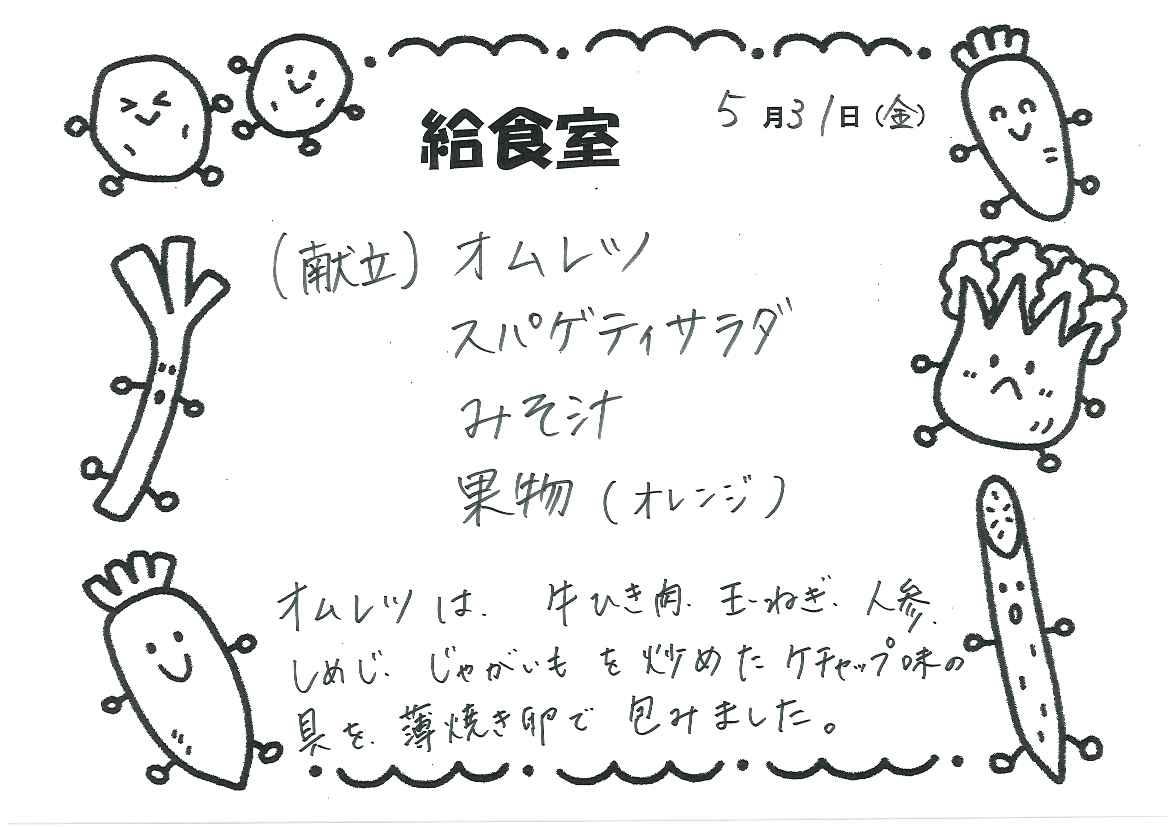 給食室
5月31日(金)
(献立) オムレツ
スパゲティサラダ
みそ汁
果物 (オレンジ)
オムレツは、牛ひき肉、玉ねぎ、人参、
しめじ、じゃがいもを炒めたケチャップ味の
具を、薄焼き卵で包みました。